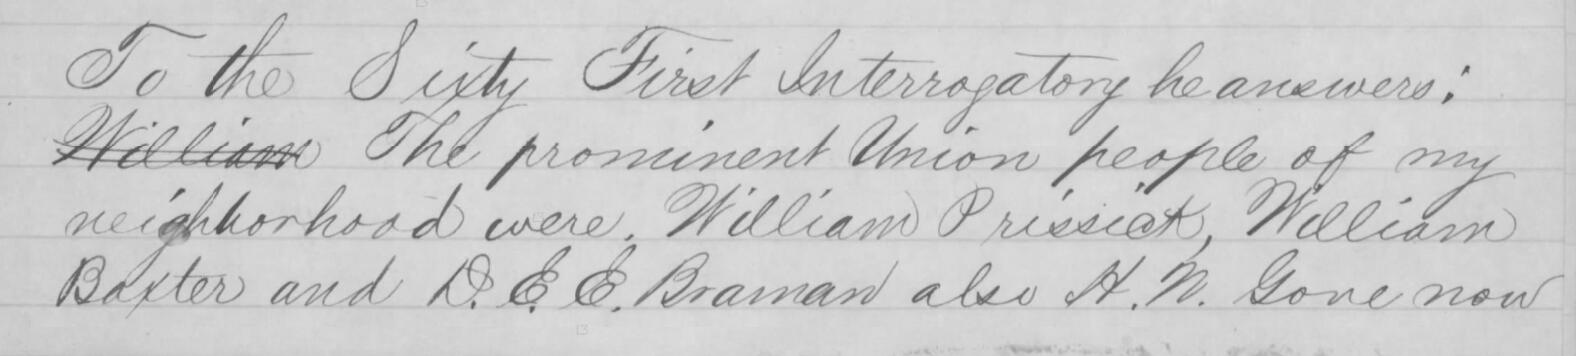 To the Sixty First Interrogatory he answers:
William The prominent Union people of my
neighborhood were. William Prissick, William
Baxter and D. E. E. Braman also H. N. Gove now